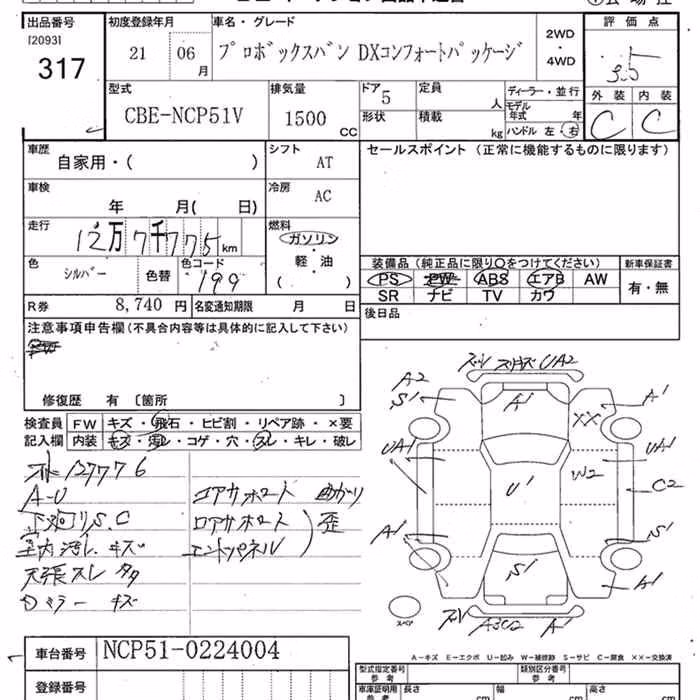 出品番号 初度登録年月 車名・グレード 評価点
[2093]
317
21 06 月 プロボックスバン DXコンフォートパッケージ
2WD
・
4WD
3.5
型式 排気量 ドア 定員 ディーラー・並行 外装 内装
CBE-NCP51V 1500 CC 5 人 モデル年式 年 C C
形状 積載 kg ハンドル 左・右
車歴 シフト セールスポイント (正常に機能するものに限ります)
自家用・( ) AT
車検 冷房
年 月( 日) AC
走行 燃料
12万7千775 km ガソリン
軽・油
( )
色 色コード
シルバー 色替 199
装備品 (純正品に限り○をつけてください) 新車保証書
PS PW ABS エアB AW 有・無
SR ナビ TV カワ
R券 8,740 円 名変通知期限 月 日
後日品
注意事項申告欄 (不具合内容等は具体的に記入して下さい)
修復歴 有 〔箇所 〕
検査員 FW キズ・飛石・ヒビ割・リペア跡・×要
記入欄 内装 キズ・汚レ・コゲ・穴・スレ・キレ・破レ
127776
A-U
下廻りS.C
室内汚レ キズ
天張スレ
ミラー キズ
コアサポート 曲がり
ロアサポート
エンドパネル
歪
A2
S1
UA2
A1
A1
XX
UA1
UA1
W2
C2
U1
A1
S1
S1
A1
A3C2 A1
スペア
A-キズ E-エクボ U-凹み W-補修跡 S-サビ C-腐食 XX-交換済
車台番号 NCP51-0224004
登録番号
型式指定番号 参考 類別区分番号 参考
車庫証明用 参考 長さ cm 幅 cm 高さ cm